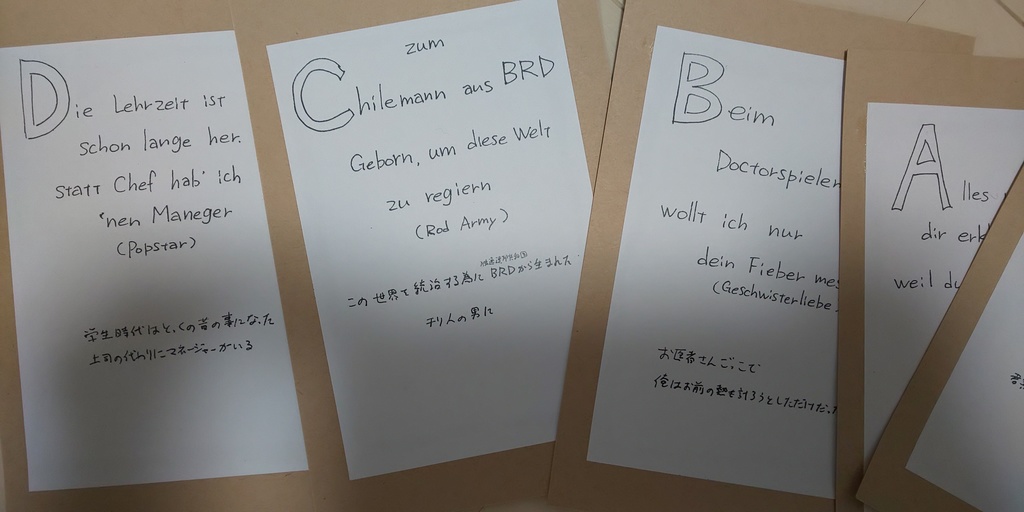 Die Lehrzeit ist
schon lange her.
statt Chef hab' ich
'nen Maneger
(Popstar)
学生時代はとっくの昔の事になった
上司の代わりにマネージャーがいる
zum
Chilemann aus BRD
Geborn, um diese Welt
zu regiern
(Rod Army)
この世界を統治する為にBRDから生まれた
チリ人の男に
Beim
Doctorspielen
wollt ich nur
dein Fieber mes
(Geschwisterliebe
お医者さんごっこで
俺はお前の熱を計ろうとしただけだっ
Alles
dir erk
weil du